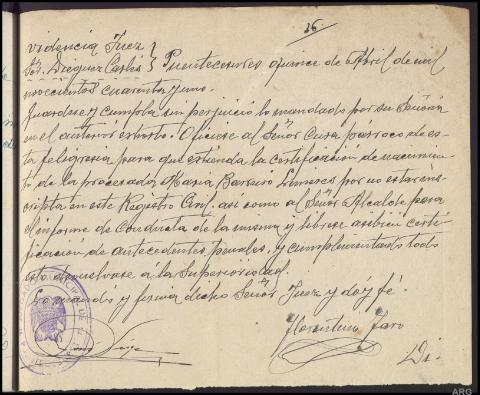 16
videncia Juez }
Sor. Dieguez Carlés } Puentecesures quince de Abril de mil
novecientos cuarenta y uno.
Guardese y cumpla sin perjuicio lo mandado por su Señoria
en el anterior exhorto. Oficiese al Señor Cura párroco de es-
ta feligresia para que extienda la certificación de nacimien-
to de la procesada Maria Barreiro por no estar ins-
cripta en este Registro Civil, asi como al Señor Alcalde para
el informe de Conducta de la misma y librese certi-
ficación de antecedentes penales, y cumplimentado todo
esto devuelvase a la Superioridad.
Lo mandó y firma dicho Señor Juez y doy fé.
Florentino Jaro
ARG